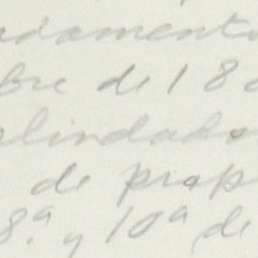 damento
bre de 18
blindados
de prop
8.ª y 10ª de